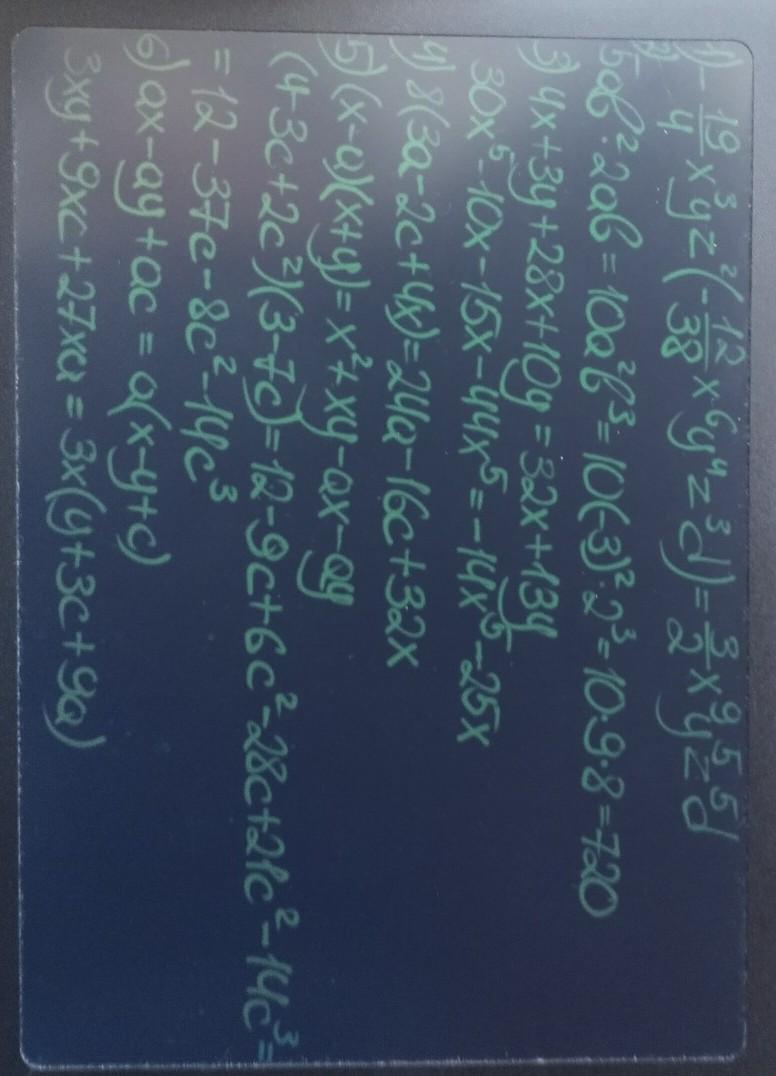 1) -19/4 x³yz²(-12/38 x⁶y⁴z³d) = 3/2 x⁹y⁵z⁵d
2) 5ab²·2ab = 10a²b³ = 10(-3)²·2³ = 10·9·8 = 720
3) 4x+3y+28x+10y = 32x+13y
30x⁵-10x-15x-44x⁵ = -14x⁵-25x
4) 8(3a-2c+4x) = 24a-16c+32x
5) (x-a)(x+y) = x²+xy-ax-ay
(4-3c+2c²)(3-7c) = 12-9c+6c²-28c+21c²-14c³ =
= 12-37c-8c²-14c³
6) ax-ay+ac = a(x-y+c)
3xy+9xc+27xa = 3x(y+3c+9a)